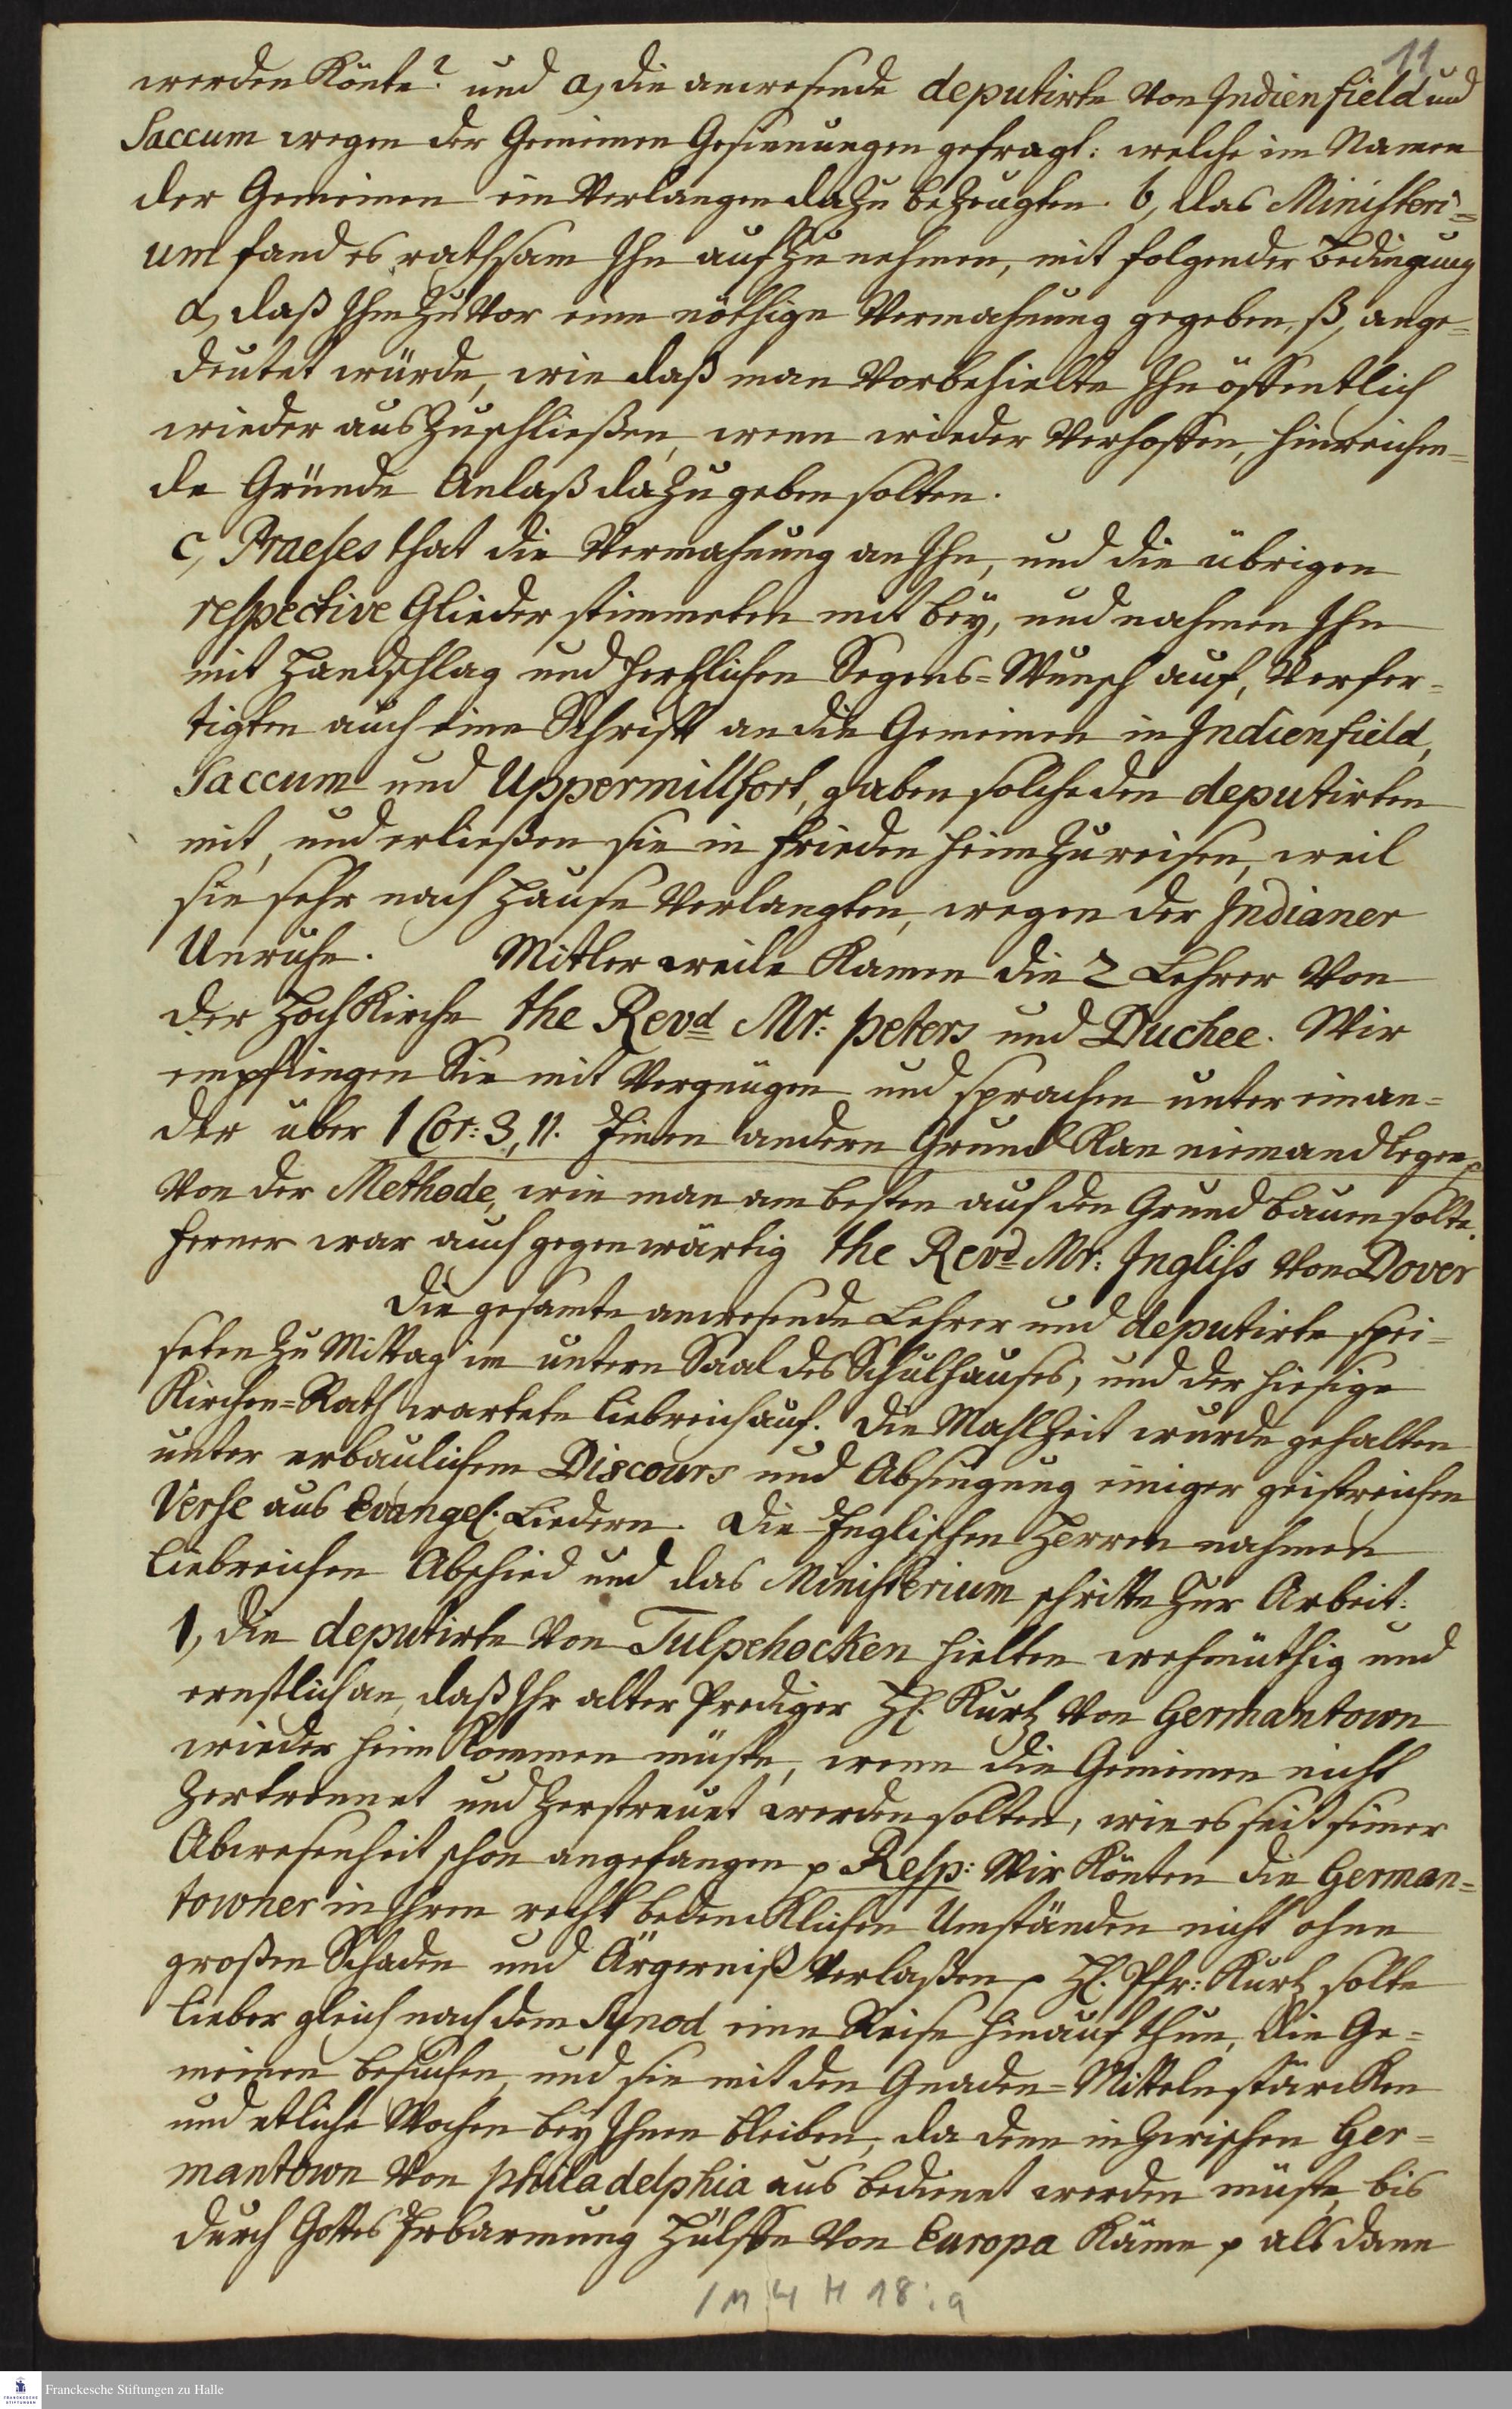 11
werden Könte? und a, die anwesende deputirte von Indienfield und
Saccum wegen der Gemeinen Gesinnungen gefragt: welche im Namen
der Gemeinen ein Verlangen dazu bezeugten. b, das Ministeri=
um fand es rathsam Ihn aufzunehmen, mit folgender Bedingung
α, daß Ihm zuvor eine nöthige Vermahnung gegeben, β, ange=
deutet würde, wie daß man vorbehielte Ihn öffentlich
wieder auszuschließen, wenn wieder Verhoffen, hinreichen=
de Gründe Anlaß dazu geben solten.
c, Praeses that die Vermahnung an Ihn, und die übrigen
respective Glieder stimmeten mit bey, und nahmen Ihn
mit Handschlag und hertzlichen Segens=Wunsch auf, verfer=
tigten auch eine Schrifft an die Gemeinen in Indienfield,
Saccum und Uppermillfort, gaben solche den deputirten
mit, und erließen sie in Frieden heimzureisen, weil
sie sehr nach Hause verlangten, wegen der Indianer
Unruhe. Mitler weile Kamen die 2 Lehrer von
der HochKirche the Revd Mr: peters und Duchee. Wir
empfiengen Sie mit Vergnügen und sprachen unter einan=
der über 1 Cor: 3, 11. Einen andern Grund Kan niemand legen p
Von der Methode, wie man am besten auf den Grund bauen solte.
Ferner war auch gegenwärtig the Revd Mr: Ingliss von Dover
Die gesamte anwesende Lehrer und deputirte spei=
seten zu Mittag im untern Saal des Schulhauses, und der hiesige
Kirchen=Rath wartete liebreich auf. Die Mahlzeit wurde gehalten
unter erbaulichem Discours und Absingung einiger geistreichen
Verse aus Evangel. Liedern. Die Englischen Herren nahmen
liebreichen Abschied und das Ministerium schritte zur Arbeit:
1, die deputirte von Tulpehocken hielten wehmüthig und
ernstlich an, daß Ihr alter Prediger H. Kurtz von Germantown
wieder heim Kommen müste, wenn die Gemeinen nicht
zertrennet und zerstreuet werden solten, wie es seit seiner
Abwesenheit schon angefangen p Resp: Wir Könten die German=
towner in Ihren recht bedencklichen Umständen nicht ohne
großen Schaden und Ärgerniß verlaßen p H. Pfr: Kurtz solte
lieber gleich nach dem Synod eine Reise hinauf thun, die Ge=
meinen besuchen, und sie mit den Gnaden=Mitteln stärcken
und etliche Wochen bey Ihnen bleiben, da denn inzwischen Ger=
mantown von philadelphia aus bedienet werden müste, bis
durch Gottes Erbarmung Hülffe von Europa Käme p als dann
1 M 4 H 18 : a
FRANCKESCHE STIFTUNGEN
Franckesche Stiftungen zu Halle